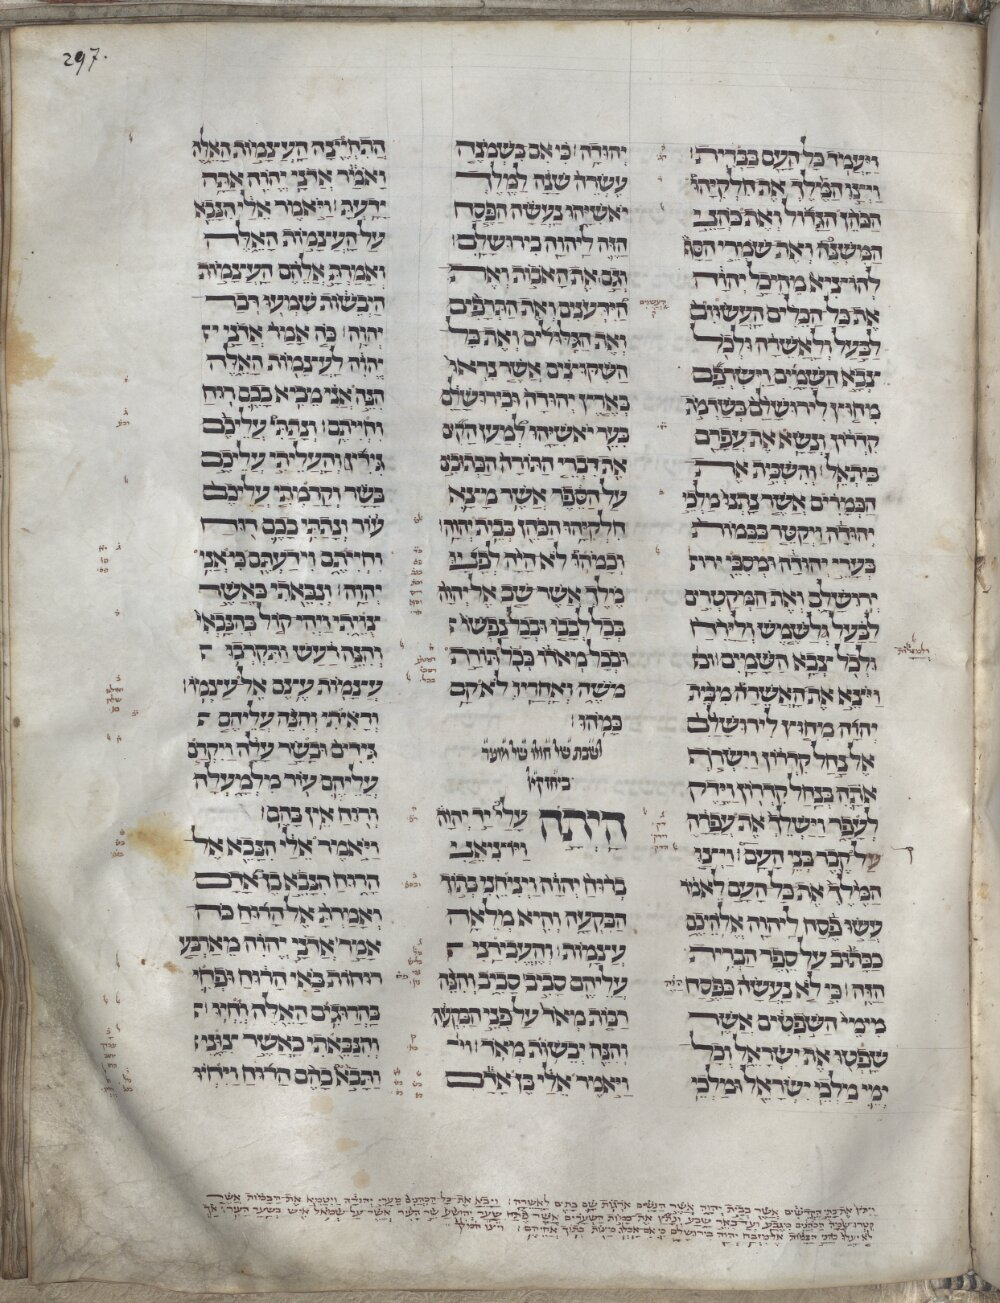 297.
ויעמד כל העם בברית׃
ויצו המלך את חלקיהו
הכהן הגדול ואת כהני
המשנה ואת שמרי הסף
להוציא מהיכל יהוה
את כל הכלים העשוים
לבעל ולאשרה ולכל
צבא השמים וישרפם
מחוץ לירושלם בשדמות
קדרון ונשא את עפרם
ביתאל׃ והשבית את
הכמרים אשר נתנו מלכי
יהודה ויקטר בבמות
בערי יהודה ומסבי
ירושלם ואת המקטרים
לבעל ולשמש ולירח
ולכל צבא השמים׃
ויצא את האשרה מבית
יהוה מחוץ לירושלם
אל נחל קדרון וישרף
אתה בנחל קדרון וידק
לעפר וישלך את עפרה
על קבר בני העם׃ ויצו
המלך את כל העם לאמר
עשו פסח ליהוה אלהיכם
ככתוב על ספר הברית
הזה׃ כי לא נעשה כפסח הזה
מימי השפטים אשר
שפטו את ישראל וכל
ימי מלכי ישראל ומלכי
יהודה׃ כי אם בשמנה
עשרה שנה למלך
יאשיהו נעשה הפסח
הזה ליהוה בירושלם׃
וגם את האבות ואת
הידענים ואת התרפים
ואת הגלולים ואת כל
השקוצים אשר נראו
בארץ יהודה ובירושלם
בער יאשיהו למען הקים
את דברי התורה הכתבים
על הספר אשר מצא
חלקיהו הכהן בבית יהוה׃
וכמהו לא היה לפניו
מלך אשר שב אל יהוה
בכל לבבו ובכל נפשו
ובכל מאדו ככל תורת
משה ואחריו לא קם
כמהו׃
שבת של חולו של מועד
היתה עלי יד יהוה
ויוציאני
ברוח יהוה ויניחני בתוך
הבקעה והיא מלאה
עצמות׃ והעבירני
עליהם סביב סביב והנה
רבות מאד על פני הבקעה
והנה יבשות מאד׃
ויאמר אלי בן אדם
התחיינה העצמות האלה
ואמר אדני יהוה אתה
ידעת׃ ויאמר אלי הנבא
על העצמות האלה
ואמרת אלהם העצמות
היבשות שמעו דבר
יהוה׃ כה אמר אדני
יהוה לעצמות האלה
הנה אני מביא בכם רוח
וחייתם׃ ונתתי עליכם
גידין והעליתי עליכם
בשר וקרמתי עליכם
עור ונתתי בכם רוח
וחייתם וידעתם כי אני
יהוה׃ ונבאתי כאשר
צויתי ויהי קול כהנבאי
והנה רעש ותקרבו
עצמות עצם אל עצמו׃
וראיתי והנה עליהם
גידים ובשר עלה ויקרם
עליהם עור מלמעלה
ורוח אין בהם׃
ויאמר אלי הנבא אל
הרוח הנבא בן אדם
ואמרת אל הרוח כה
אמר אדני יהוה מארבע
רוחות באי הרוח ופחי
בהרוגים האלה ויחיו׃
והנבאתי כאשר צוני
ותבוא בהם הרוח ויחיו
ויתץ את בתי הקדשים אשר בבית יהוה אשר הנשים ארגות שם בתים לאשרה׃ ויבא את כל הכהנים מערי יהודה ויטמא את הבמות אשר
קטרו שמה הכהנים מגבע ועד באר שבע ונתץ את במות השערים אשר פתח שער יהושע שר העיר אשר על שמאול איש בשער העיר׃ אך
לא יעלו כהני הבמות אל מזבח יהוה בירושלם כי אם אכלו מצות בתוך אחיהם׃ ויצו המלך